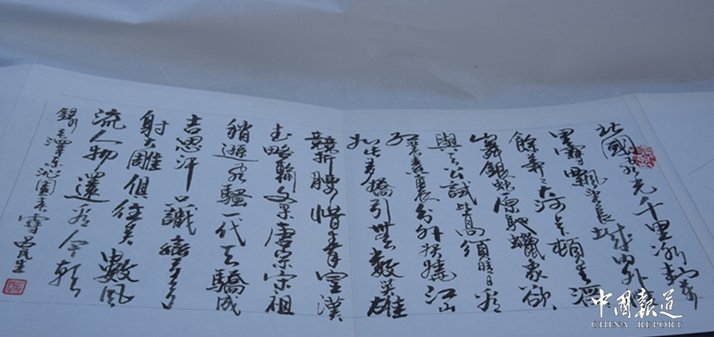 北國風光千里冰封萬
里雪飄望長城内外惟
餘莽莽大河上下頓失滔
山舞銀蛇原馳蠟象欲
與天公試比高須晴日看
紅裝素裹分外妖嬈江山
如此多嬌引無數英雄
競折腰惜秦皇漢
武略輸文采唐宗宋祖
稍遜風騷一代天驕成
吉思汗只識彎弓
射大雕俱往矣數風
流人物還看今朝
錄毛澤東沁園春雪
中國報道
CHINA REPORT